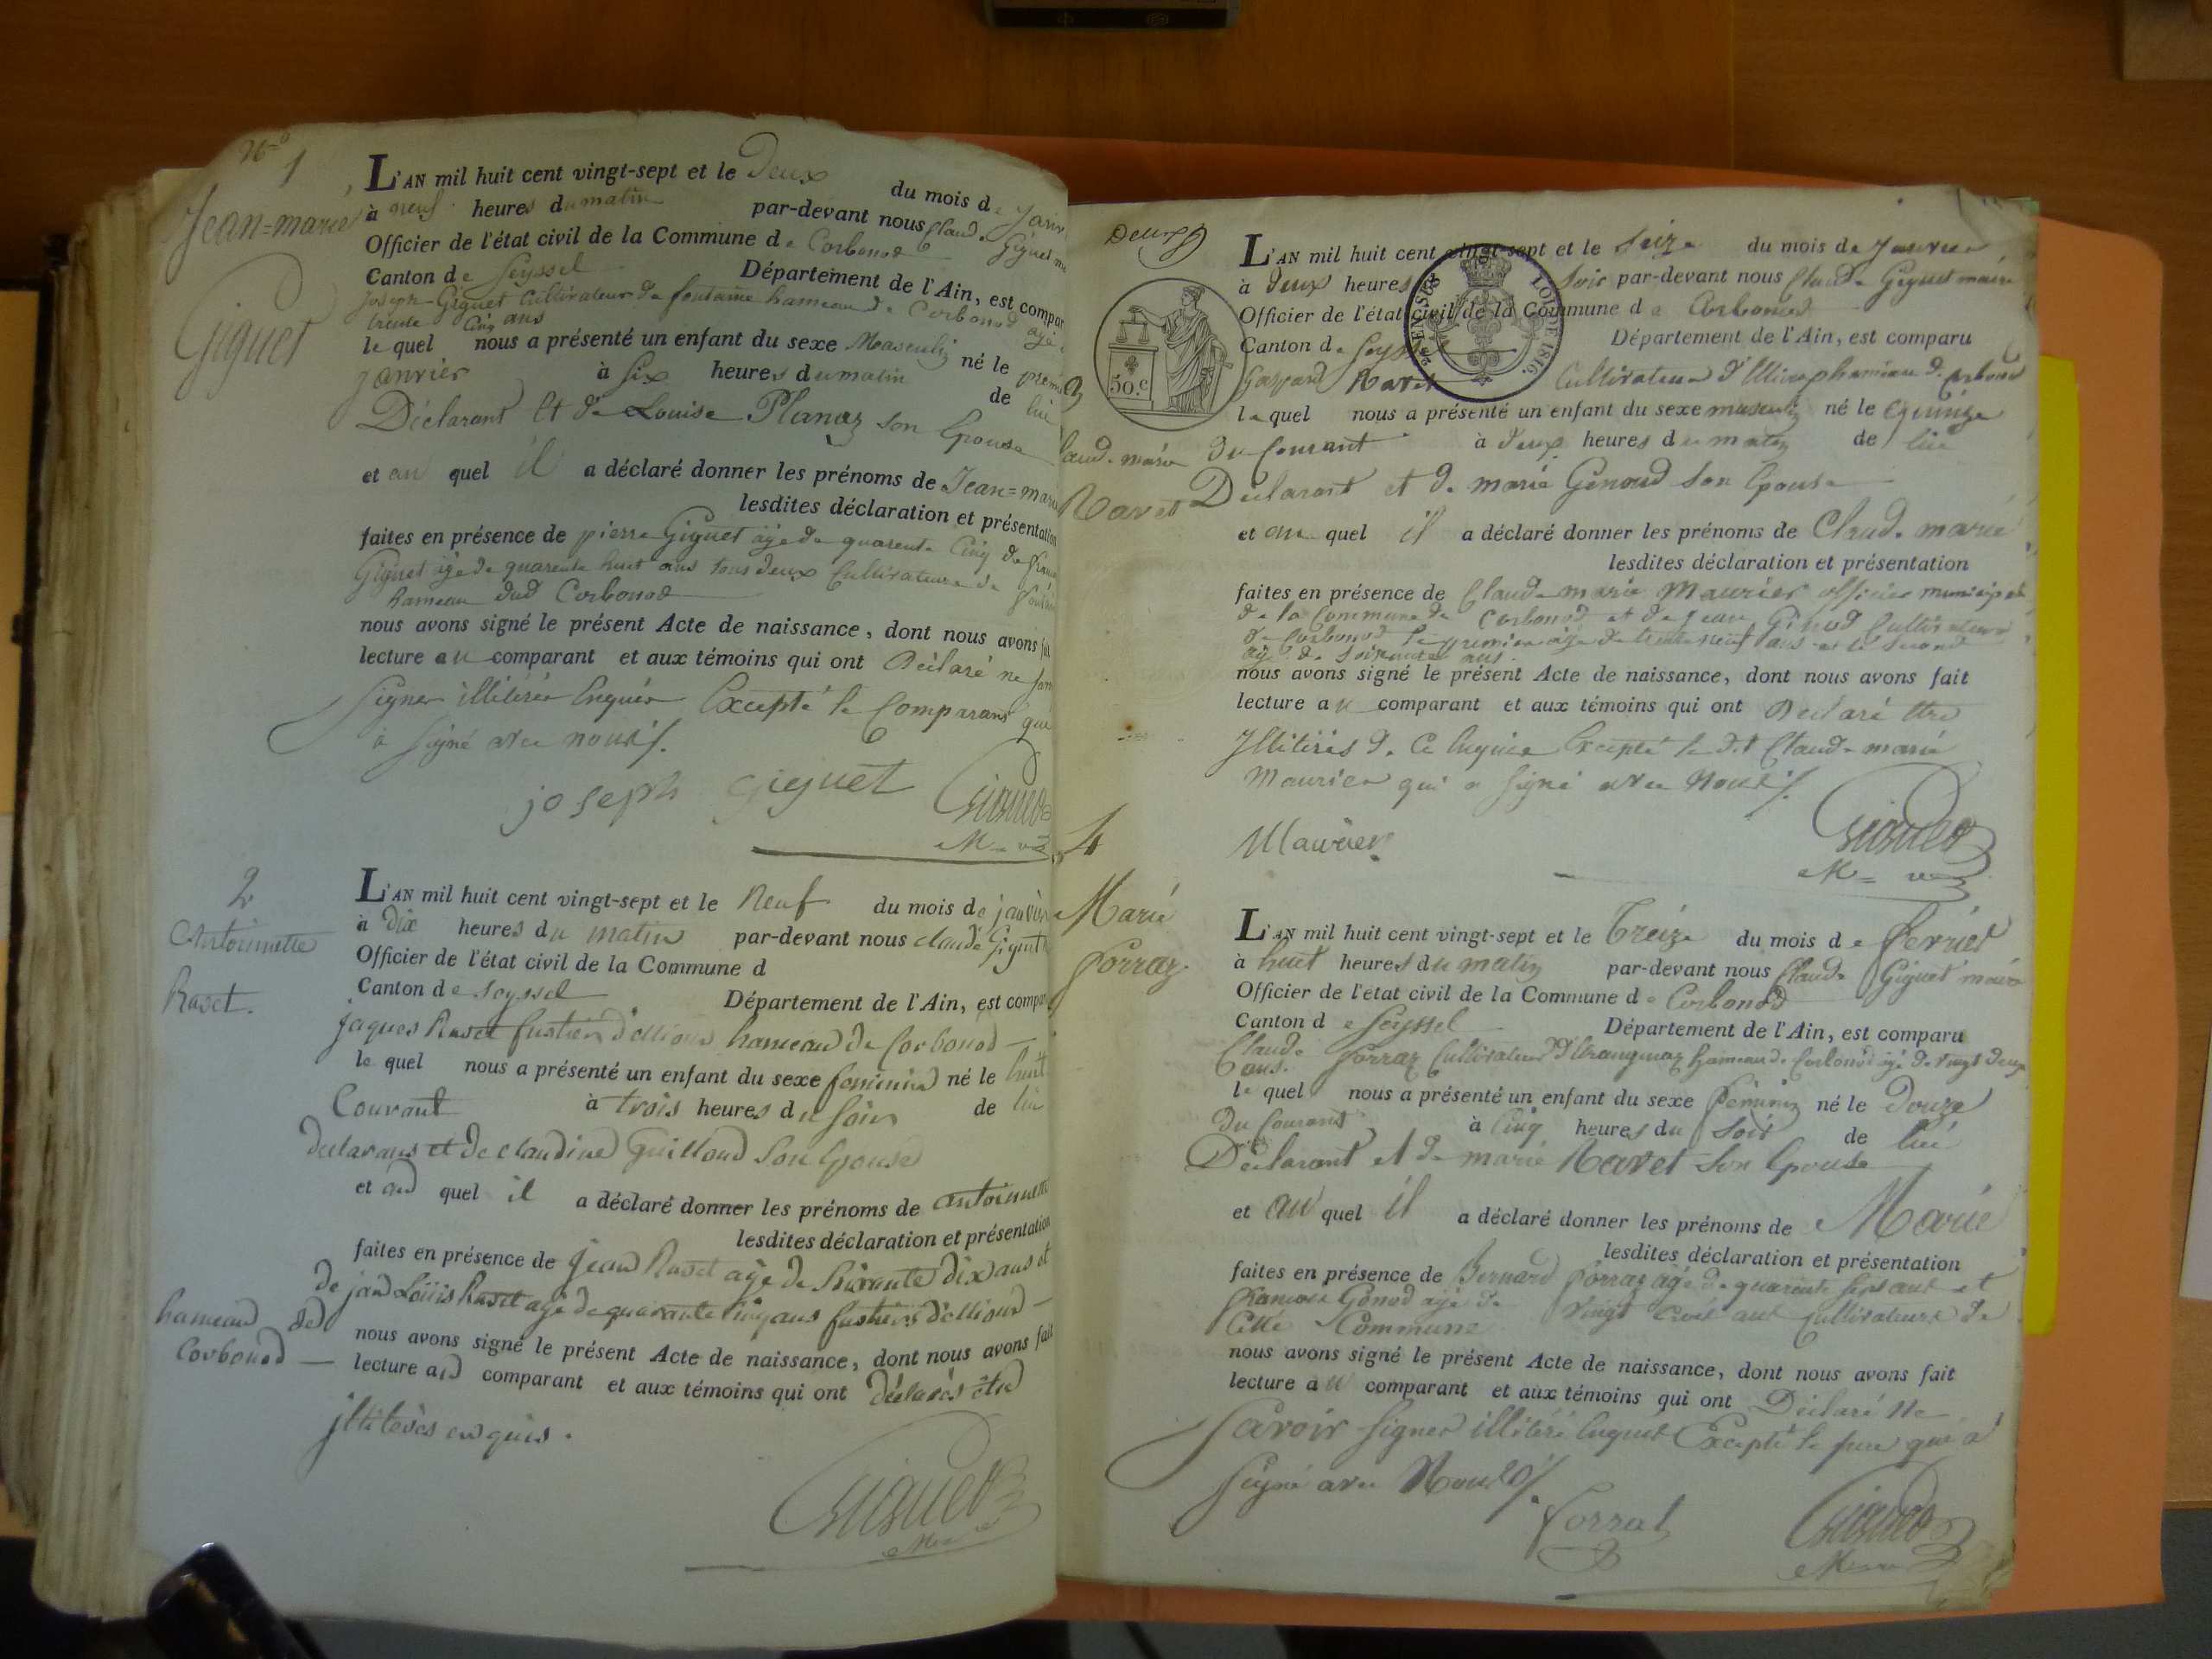 N.o 1
Jean=marie
Giguet
L'AN mil huit cent vingt-sept et le Deux du mois de Janv
à neuf heures du matin par-devant nous Claude Giguet
Officier de l'état civil de la Commune de Corbonod
Canton de Seyssel Département de l'Ain, est compar
Joseph Giguet Cultivateur de fontaine hameau de Corbonod agé
trente Cinq ans
le quel nous a présenté un enfant du sexe Masculin né le premi
janvier à Six heures du matin de lui
Déclarant et de Louise Planaz son Epouse
et au quel il a déclaré donner les prénoms de Jean=marie
lesdites déclaration et présentation
faites en présence de pierre Giguet âgé de quarente Cinq de
Giguet âgé de quarente huit ans tous deux Cultivateurs de
hameau dud Corbonod
nous avons signé le présent Acte de naissance, dont nous avons fait
lecture au comparant et aux témoins qui ont Déclaré ne
Signer illitérés Enquis Excepté le Comparant qui
à Signé avec nous /.
joseph giguet Giguet
M
2
Antoinette
Ravet.
L'AN mil huit cent vingt-sept et le Neuf du mois de janvier
à dix heures du matin par-devant nous claude Giguet
Officier de l'état civil de la Commune d
Canton de Seyssel Département de l'Ain, est compar
jaques Ravet fustier hameau de Corbonod
le quel nous a présenté un enfant du sexe feminin né le huit
Courant à trois heures du soir de lui
declarans et de claudine Guilloud son Epouse
et au quel il a déclaré donner les prénoms de antoinette
lesdites déclaration et présentation
faites en présence de jean Ravet agé de Soixante dix ans et
de jean Loüis Ravet agé de quarante cinq ans fustiers
hameau de
Corbonod
nous avons signé le présent Acte de naissance, dont nous avons fait
lecture au comparant et aux témoins qui ont déclarés être
jllitérés enquis.
Giguet
Deux
50.c
LOI DE 1816.
3
Claude marie
Ravet
L'AN mil huit cent vingt-sept et le Seize du mois de Janvier
à Deux heures soir par-devant nous Claude Giguet maire
Officier de l'état civil de la Commune de Corbonod
Canton de Seyssel Département de l'Ain, est comparu
Gaspard Ravet Cultivateur hameau de Corbonod
le quel nous a présenté un enfant du sexe masculin né le Quinze
du Courant à deux heures du matin de lui
Déclarant et de marie Genoud son Epouse
et au quel il a déclaré donner les prénoms de Claude marie
lesdites déclaration et présentation
faites en présence de Claude marie Maurier officier municipal
de la Commune de Corbonod et de jean Genod Cultivateur
de Corbonod le premier âgé de trente neuf ans et le Second
agé de Soixante ans
nous avons signé le présent Acte de naissance, dont nous avons fait
lecture au comparant et aux témoins qui ont Déclaré être
Jllitérés de Ce Enquis Excepté le dit Claude marie
Maurier qui a signé avec Nous /.
Maurier Giguet
4
Marie
Forraz.
L'AN mil huit cent vingt-sept et le Treize du mois de Fevrier
à huit heures du matin par-devant nous Claude Giguet maire
Officier de l'état civil de la Commune de Corbonod
Canton de Seyssel Département de l'Ain, est comparu
Claude Forraz Cultivateur hameau de Corbonod âgé de vingt deux
ans.
le quel nous a présenté un enfant du sexe Féminin né le Douze
du Courant à Cinq heures du Soir de lui
Déclarant et de marie Ravet son Epouse
et au quel il a déclaré donner les prénoms de Marie
lesdites déclaration et présentation
faites en présence de Bernard Forraz âgé de quarente Sept ans et
francois Genod agé de vingt ans Cultivateurs de
Cette Commune
nous avons signé le présent Acte de naissance, dont nous avons fait
lecture au comparant et aux témoins qui ont Déclaré Ne
Savoir Signer illitéré Enquis Excepté le pere qui à
Signé avec Nous /.
forrat Giguet